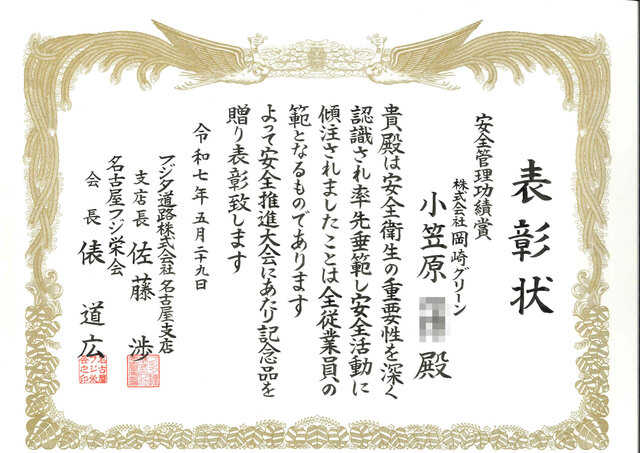 表彰状
安全管理功績賞
株式会社 岡崎グリーン
小笠原 殿
貴殿は安全衛生の重要性を深く
認識され率先垂範し安全活動に
傾注されましたことは全従業員の
範となるものであります
よって安全推進大会にあたり記念品を
贈り表彰致します
令和七年五月二十九日
フジタ道路株式会社 名古屋支店
支店長 佐藤 渉
名古屋フジ栄会
会長 俵 道広
名古屋
フジ栄
会之印